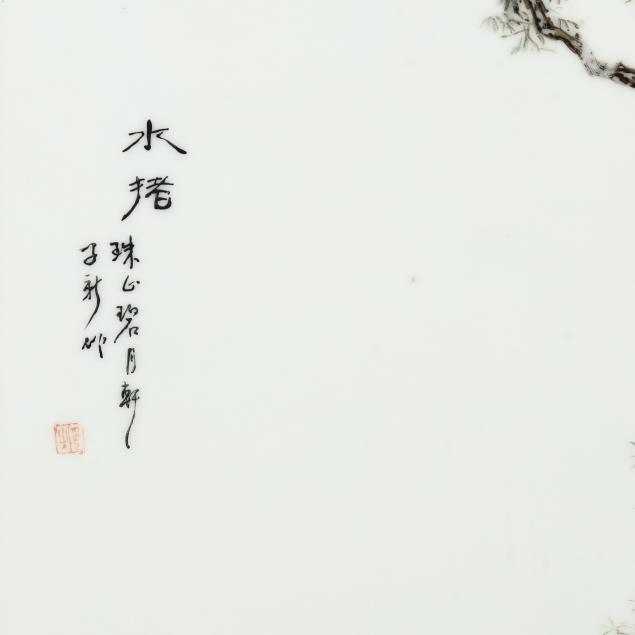 水
珠山碧月軒
子新作